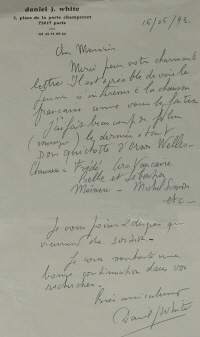 daniel j. white
2, place de la porte champerret
75017 paris
15/05/93.
Cher Monsieur
Merci pour votre charmante
lettre. Il est agréable de voir le
jeune s'intéresser à la chanson
française comme vous le faites
J'ai fait beaucoup de film
(musique) le dernier étant
Don Quichotte d'Orson Welles.
Chansons = Fréhel
et
Michel Simon
etc -
Je vous joins 2 disques qui
viennent de sortir -
Je vous souhaite une
bonne continuation dans vos
recherches -
Bien amicalement
Daniel J White